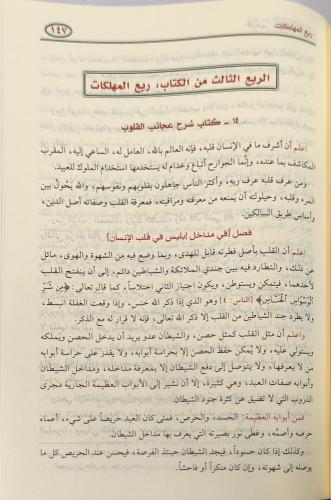 ربع المهلكات
١٤٧
الربع الثالث من الكتاب: ربع المهلكات
١٤ - كتاب شرح عجائب القلوب
اعلم أن أشرف ما في الإنسان قلبه، فإنه العالم بالله، العامل له، الساعي إليه، المقرب
المكاشف بما عنده، وإنما الجوارح أتباع وخدام له يستخدمها استخدام الملوك للعبيد.
ومن عرف قلبه عرف ربه، وأكثر الناس جاهلون بقلوبهم ونفوسهم، والله يحول بين
المرء وقلبه، وحيلولته أن يمنعه من معرفته ومراقبته، فمعرفة القلب وصفاته أصل الدين،
وأساس طريق السالكين.
فصل [في مداخل إبليس في قلب الإنسان]
اعلم أن القلب بأصل فطرته قابل للهدى، وبما وضع فيه من الشهوة والهوى، مائل
عن ذلك، والتطارد فيه بين جندي الملائكة والشياطين دائم، إلى أن ينفتح القلب
لأحدهما، فيتمكن ويستوطن، ويكون اجتياز الثاني اختلاسًا، كما قال تعالى: ﴿مِن شَرِّ
الْوَسْوَاسِ الْخَنَّاسِ﴾ [الناس: ٤] وهو الذي إذا ذكر الله خنس، وإذا وقعت الغفلة انبسط،
ولا يطرد جند الشياطين من القلب إلا ذكر الله تعالى، فإنه لا قرار له مع الذكر.
واعلم أن مثل القلب كمثل حصن، والشيطان عدو يريد أن يدخل الحصن ويملكه
ويستولي عليه، ولا يمكن حفظ الحصن إلا بحراسة أبوابه، ولا يقدر على حراسة أبوابه
من لا يعرفها، ولا يتوصل إلى دفع الشيطان إلا بمعرفة مداخله، ومداخل الشيطان
وأبوابه صفات العبد، وهي كثيرة، إلا أن نشير إلى الأبواب العظيمة الجارية مجرى
الدروب التي لا تضيق عن كثرة جنود الشيطان.
فمن أبوابه العظيمة: الحسد، والحرص، فمتى كان العبد حريصًا على شيء، أعماه
حرصه وأصمه، وغطى نور بصيرته التي يعرف بها مداخل الشيطان.
وكذلك إذا كان حسودًا، فيجد الشيطان حينئذ الفرصة، فيحسن عند الحريص كل ما
يوصله إلى شهوته، وإن كان منكرًا أو فاحشًا.